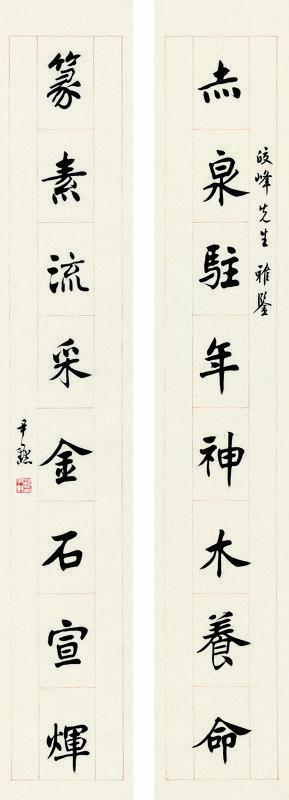 赤泉駐年神木養命
皎峰先生雅鑒
篆素流采金石宣煇
尹默